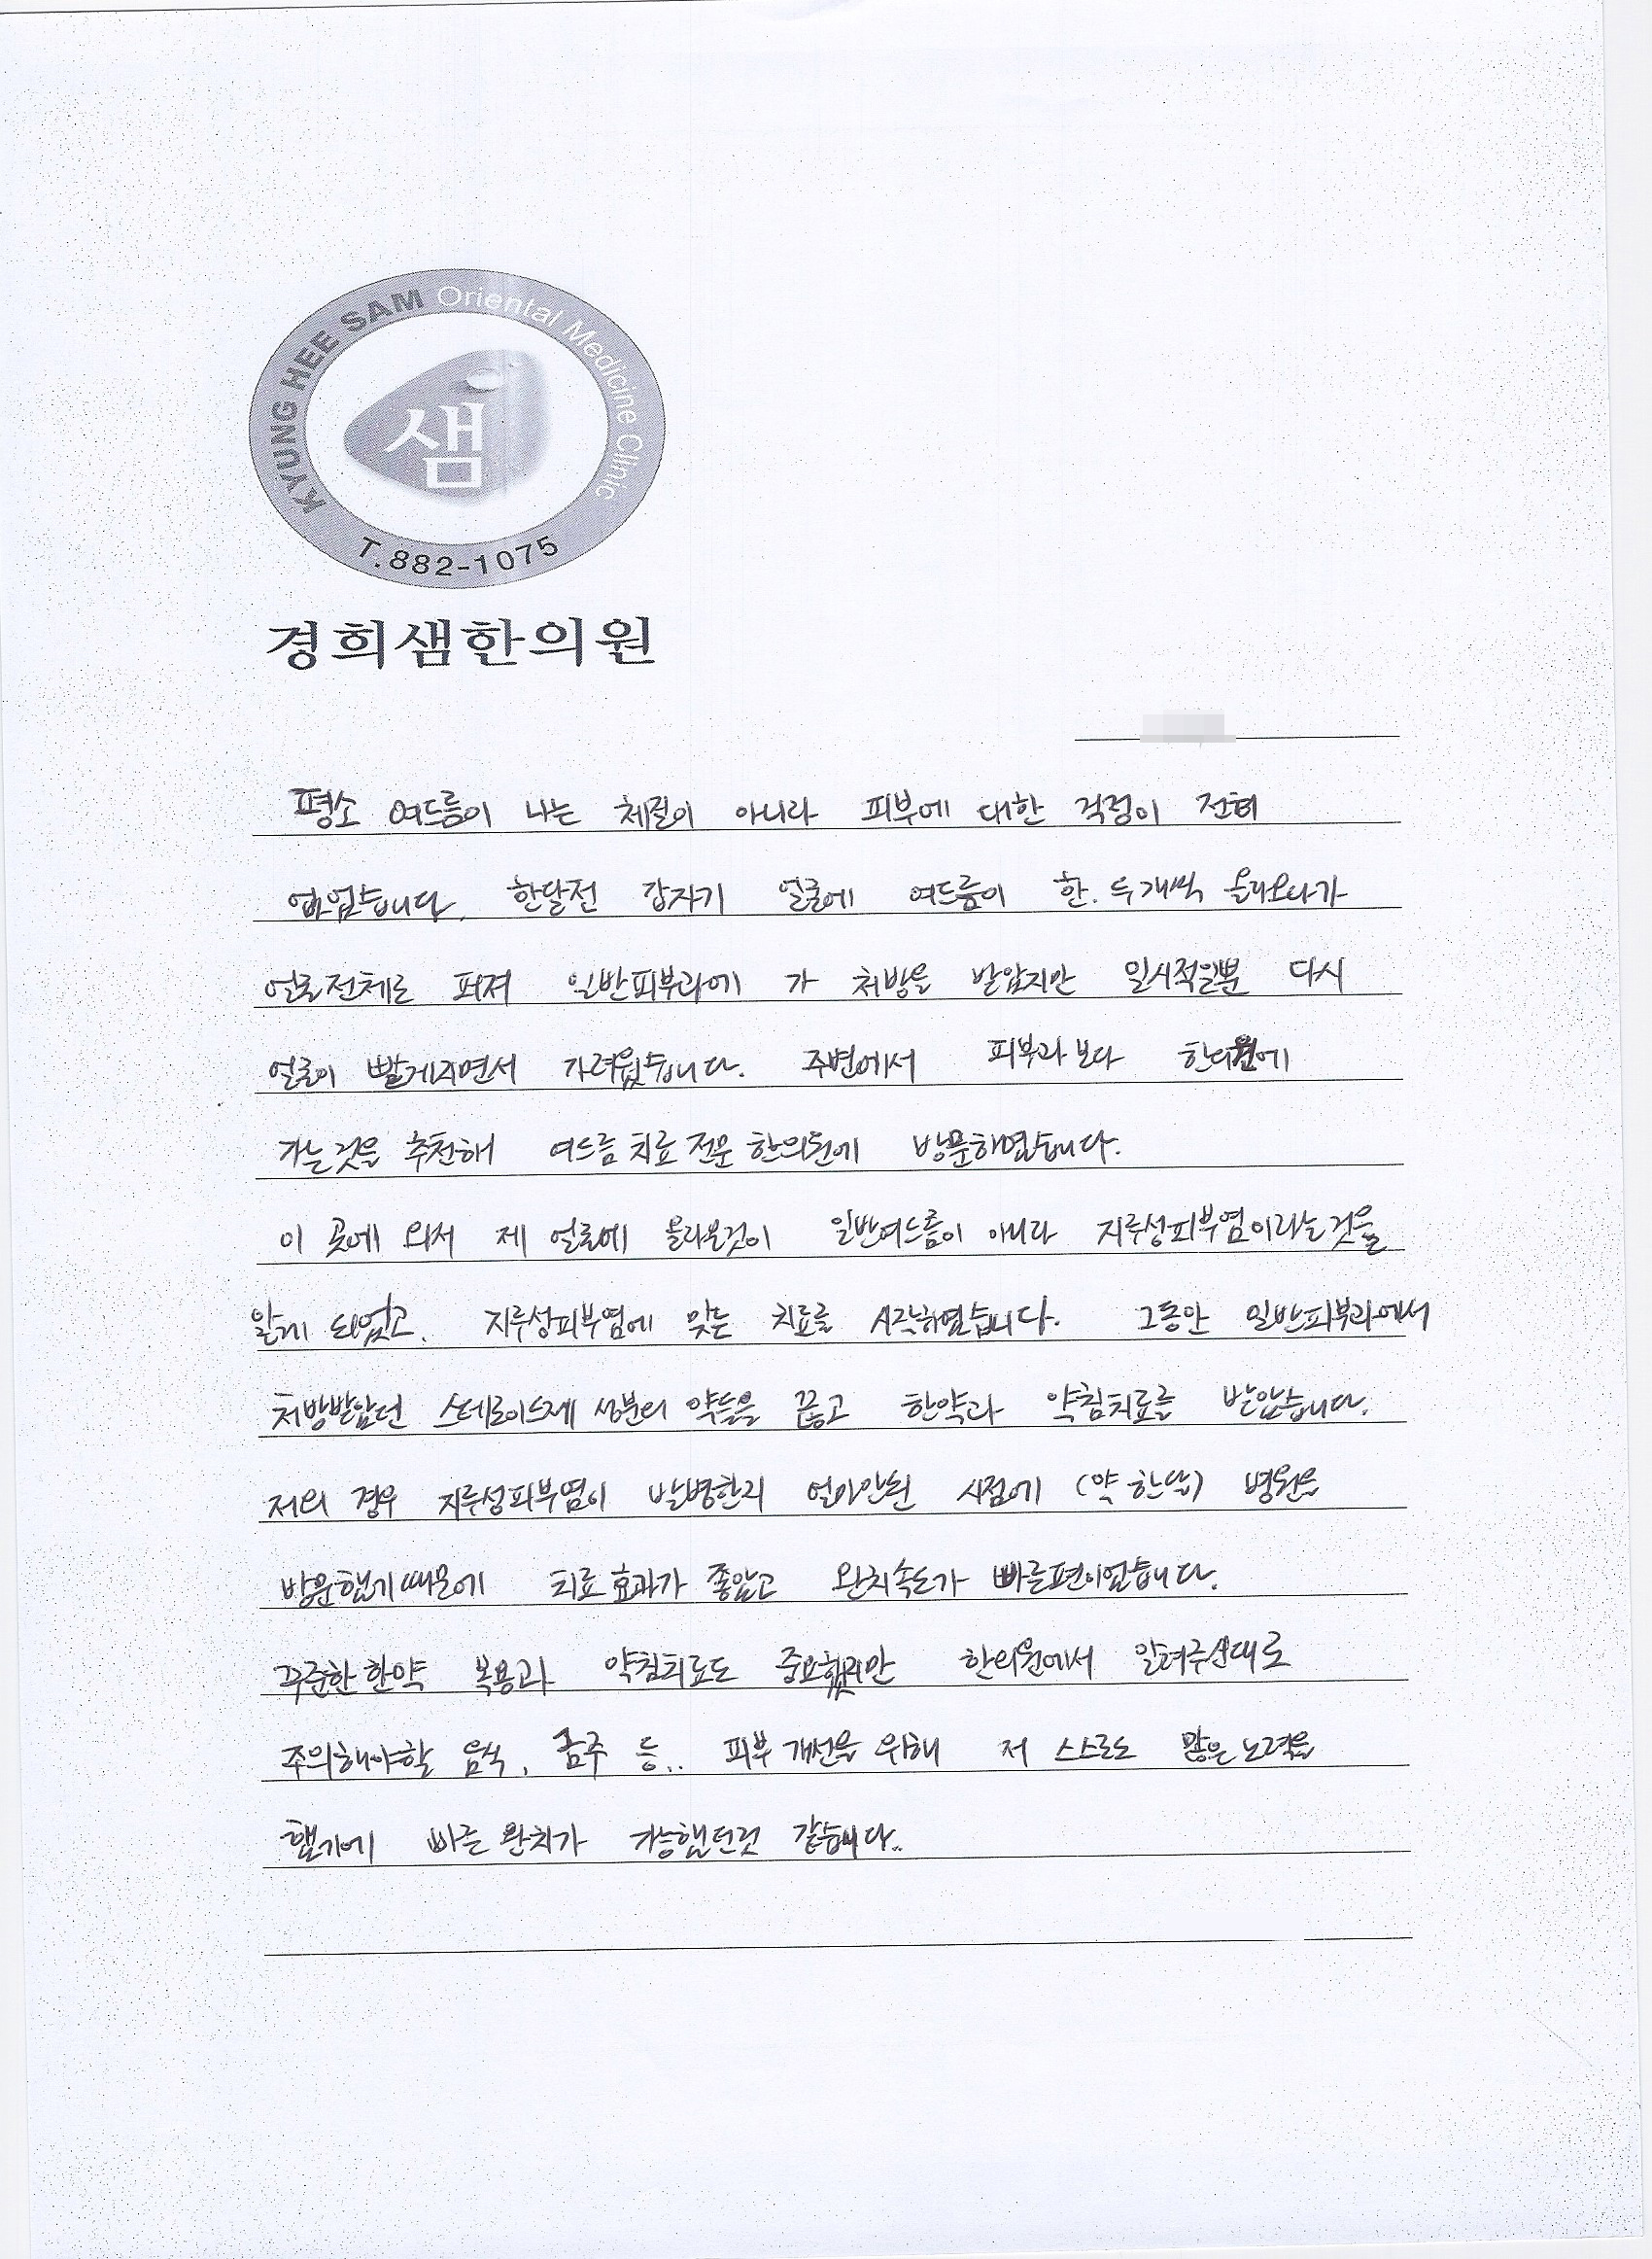 KYUNG HEE SAM Oriental Medicine Clinic
샘
T.882-1075
경희샘한의원
평소 여드름이 나는 체질이 아니라 피부에 대한 걱정이 전혀
없었습니다. 한달전 갑자기 얼굴에 여드름이 한. 두개씩 올라오다가
얼굴전체로 퍼져 일반피부과에 가 처방을 받았지만 일시적일뿐 다시
얼굴이 빨게지면서 가려웠습니다. 주변에서 피부과 보다 한의원에
가는 것을 추천해 여드름 치료 전문 한의원에 방문하였습니다.
이 곳에 와서 제 얼굴에 올라온것이 일반여드름이 아니라 지루성피부염이라는것을
알게 되었고, 지루성피부염에 맞는 치료를 시작하였습니다. 그동안 일반피부과에서
처방받았던 스테로이드제 성분의 약들을 끊고 한약과 약침치료를 받았습니다.
저의 경우 지루성피부염이 발병한지 얼마안된 시점에 (약 한달) 병원을
방문했기때문에 치료효과가 좋았고 완치속도가 빠른편이었습니다.
꾸준한 한약 복용과 약침치료도 중요했지만 한의원에서 알려주신대로
주의해야할 음식, 금주 등.. 피부 개선을 위해 저 스스로도 많은 노력을
했기에 빠른 완치가 가능했던것 같습니다..